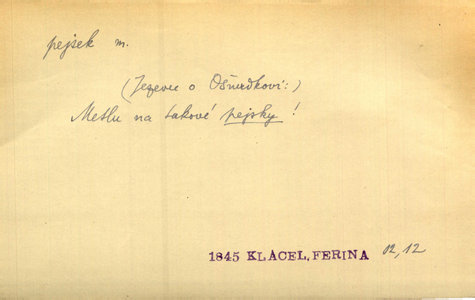 pejsek m.
(Jezevec o Ošmrdkovi:)
Metlu na takové pejsky!
1845 KLÁCEL, FERINA 02,12